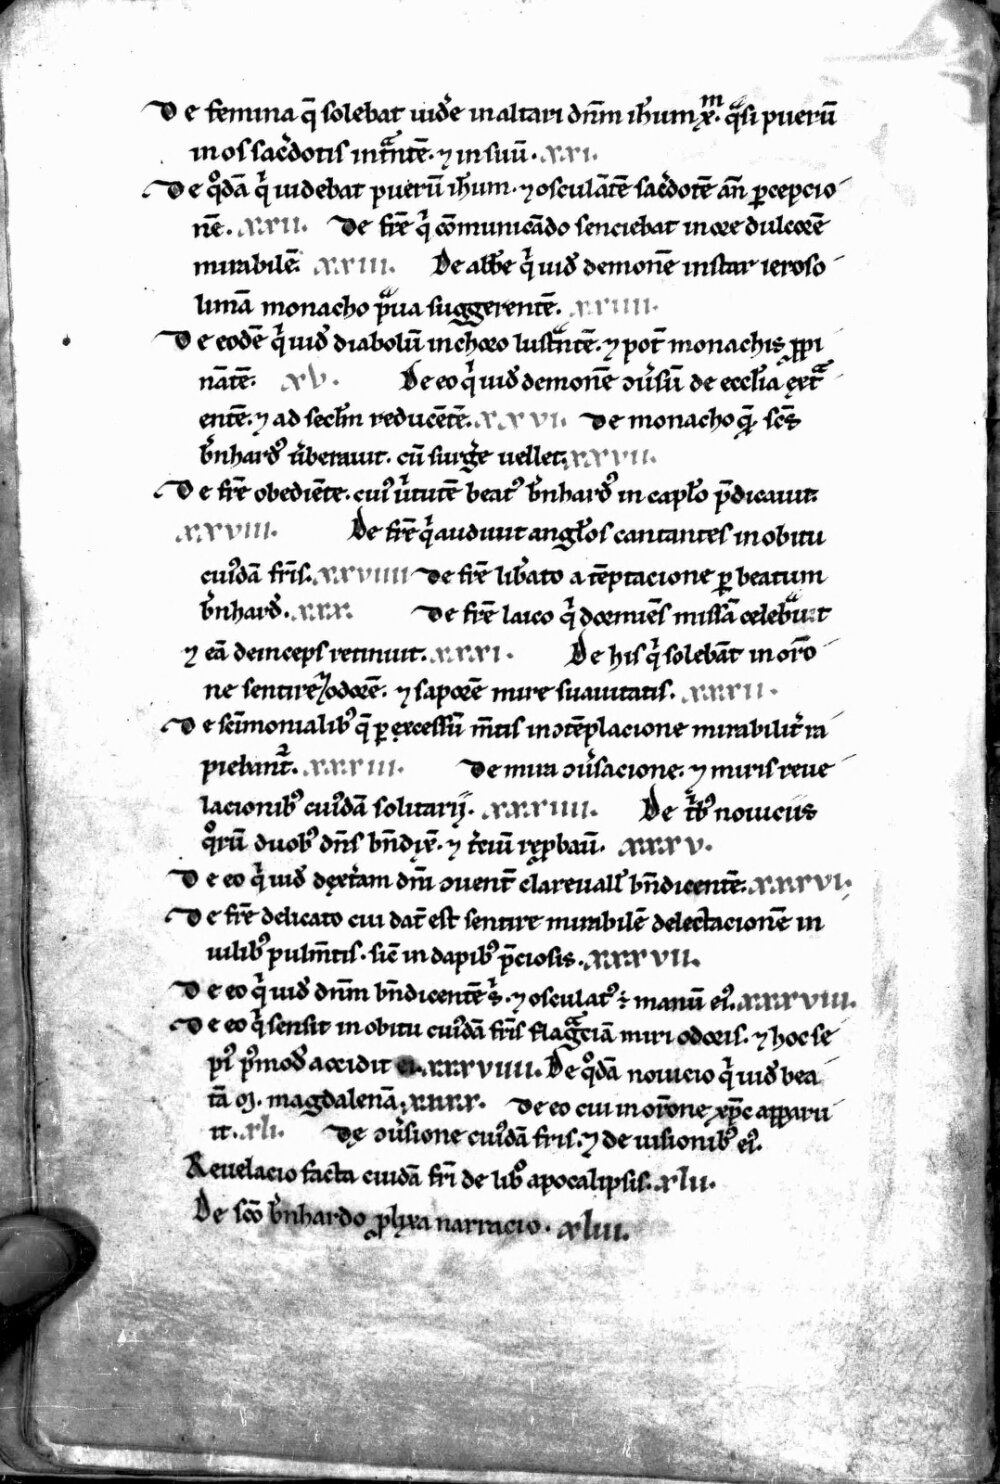 De femina q̄ solebat uidẽ in altari dn̄m ih̄um xͫ. qͣsi puerū
in os sac̃dotis intͣntē. ⁊ in suū. XXI.
De qͦdā qͥ uidebat puerū ih̄um. ⁊ osculātē sac̃dotē an̄ ꝑcepcio
nē. XXII. De fr̄e qͥ cōmunicādo senciebat in ore dulcorē
mirabilē. XXIII. De abb̄e qͥ uid̃ demonē instar ieroso
limā monacho pͣua suggerentē. XXIIII.
De eodē qͥ uid̃ diabolū in choro lustͣntē. ⁊ pot̄ monachis ꝓpi
nātē. XV. De eo qͥ uid̃ demonē ꝯũsū de eccl̄ia ext̃
entē. ⁊ ad secl̄m reducētē. XXVI. De monacho qͣ sc̄s
b̃nhard᷒ ũberauit. cū surg̃e uellet. XXVII.
De fr̄e obediēte. cui᷒ ũtutē beat᷒ b̃nhard᷒ in capl̄o p̄dicauit.
XXVIII. De fr̄e qͥ audiuit angl̄os cantantes in obitu
cui᷒dā fr̄is. XXVIIII De fr̄e lib̃ato a tēptacione ꝑ beatum
b̃nhard᷒. XXX. De fr̄e laico qͥ dormiēs missā celebͣuit
⁊ eā deinceps retinuit. XXXI. De his qͥ solebāt in or̄o
ne sentire odorē. ⁊ saporē mire suauitatis. XXXII.
De sc̄imonialib᷒ q̄ ꝑ excessū m̄tis in ꝯtēplacione mirabilit̃ ra
piebant᷑. XXXIII. De mira ꝯũsacione. ⁊ miris reue
lacionib᷒ cui᷒dā solitarii. XXXIIII. De tͥb᷒ nouiciis
qͦrū duob᷒ dn̄s bn̄dix̄. ⁊ t̃ciū rep̱bauͥ. XXXV.
De eo qͥ uid̃ dext̃am dn̄i ꝯuent̄ clareuall᷒ bn̄dicentē. XXXVI.
De fr̄e delicato cui dat̄ est sentire mirabilē delectacionē in
uilib᷒ pulm̄tis. sic̄ in dapib᷒ p̄ciosis. XXXVII.
De eo qͥ uid̃ dn̄m bn̄dicentē sͥ. ⁊ osculat᷒ ÷ manū ei᷒. XXXVIII.
De eo qͥ sensit in obitu cui᷒dā fr̄is flagͣciā miri odoris. ⁊ hoc se
pi᷒ p᷒mod̃ accidit ei. XXXVIIII. De qͦdā nouicio qͥ uid̃ bea
tā M. magdalenā. XXXX. De eo cui in or̄one xp̄c apparu
it. XLI. De ꝯũsione cui᷒dā fr̄is. ⁊ de uisionib᷒ ei᷒.
Reuelacio facta cuidā fr̄i de lib᷒ apocalipsis. XLII.
De sc̄o b̃nhardo ꝓlixa narracio. XLIII.